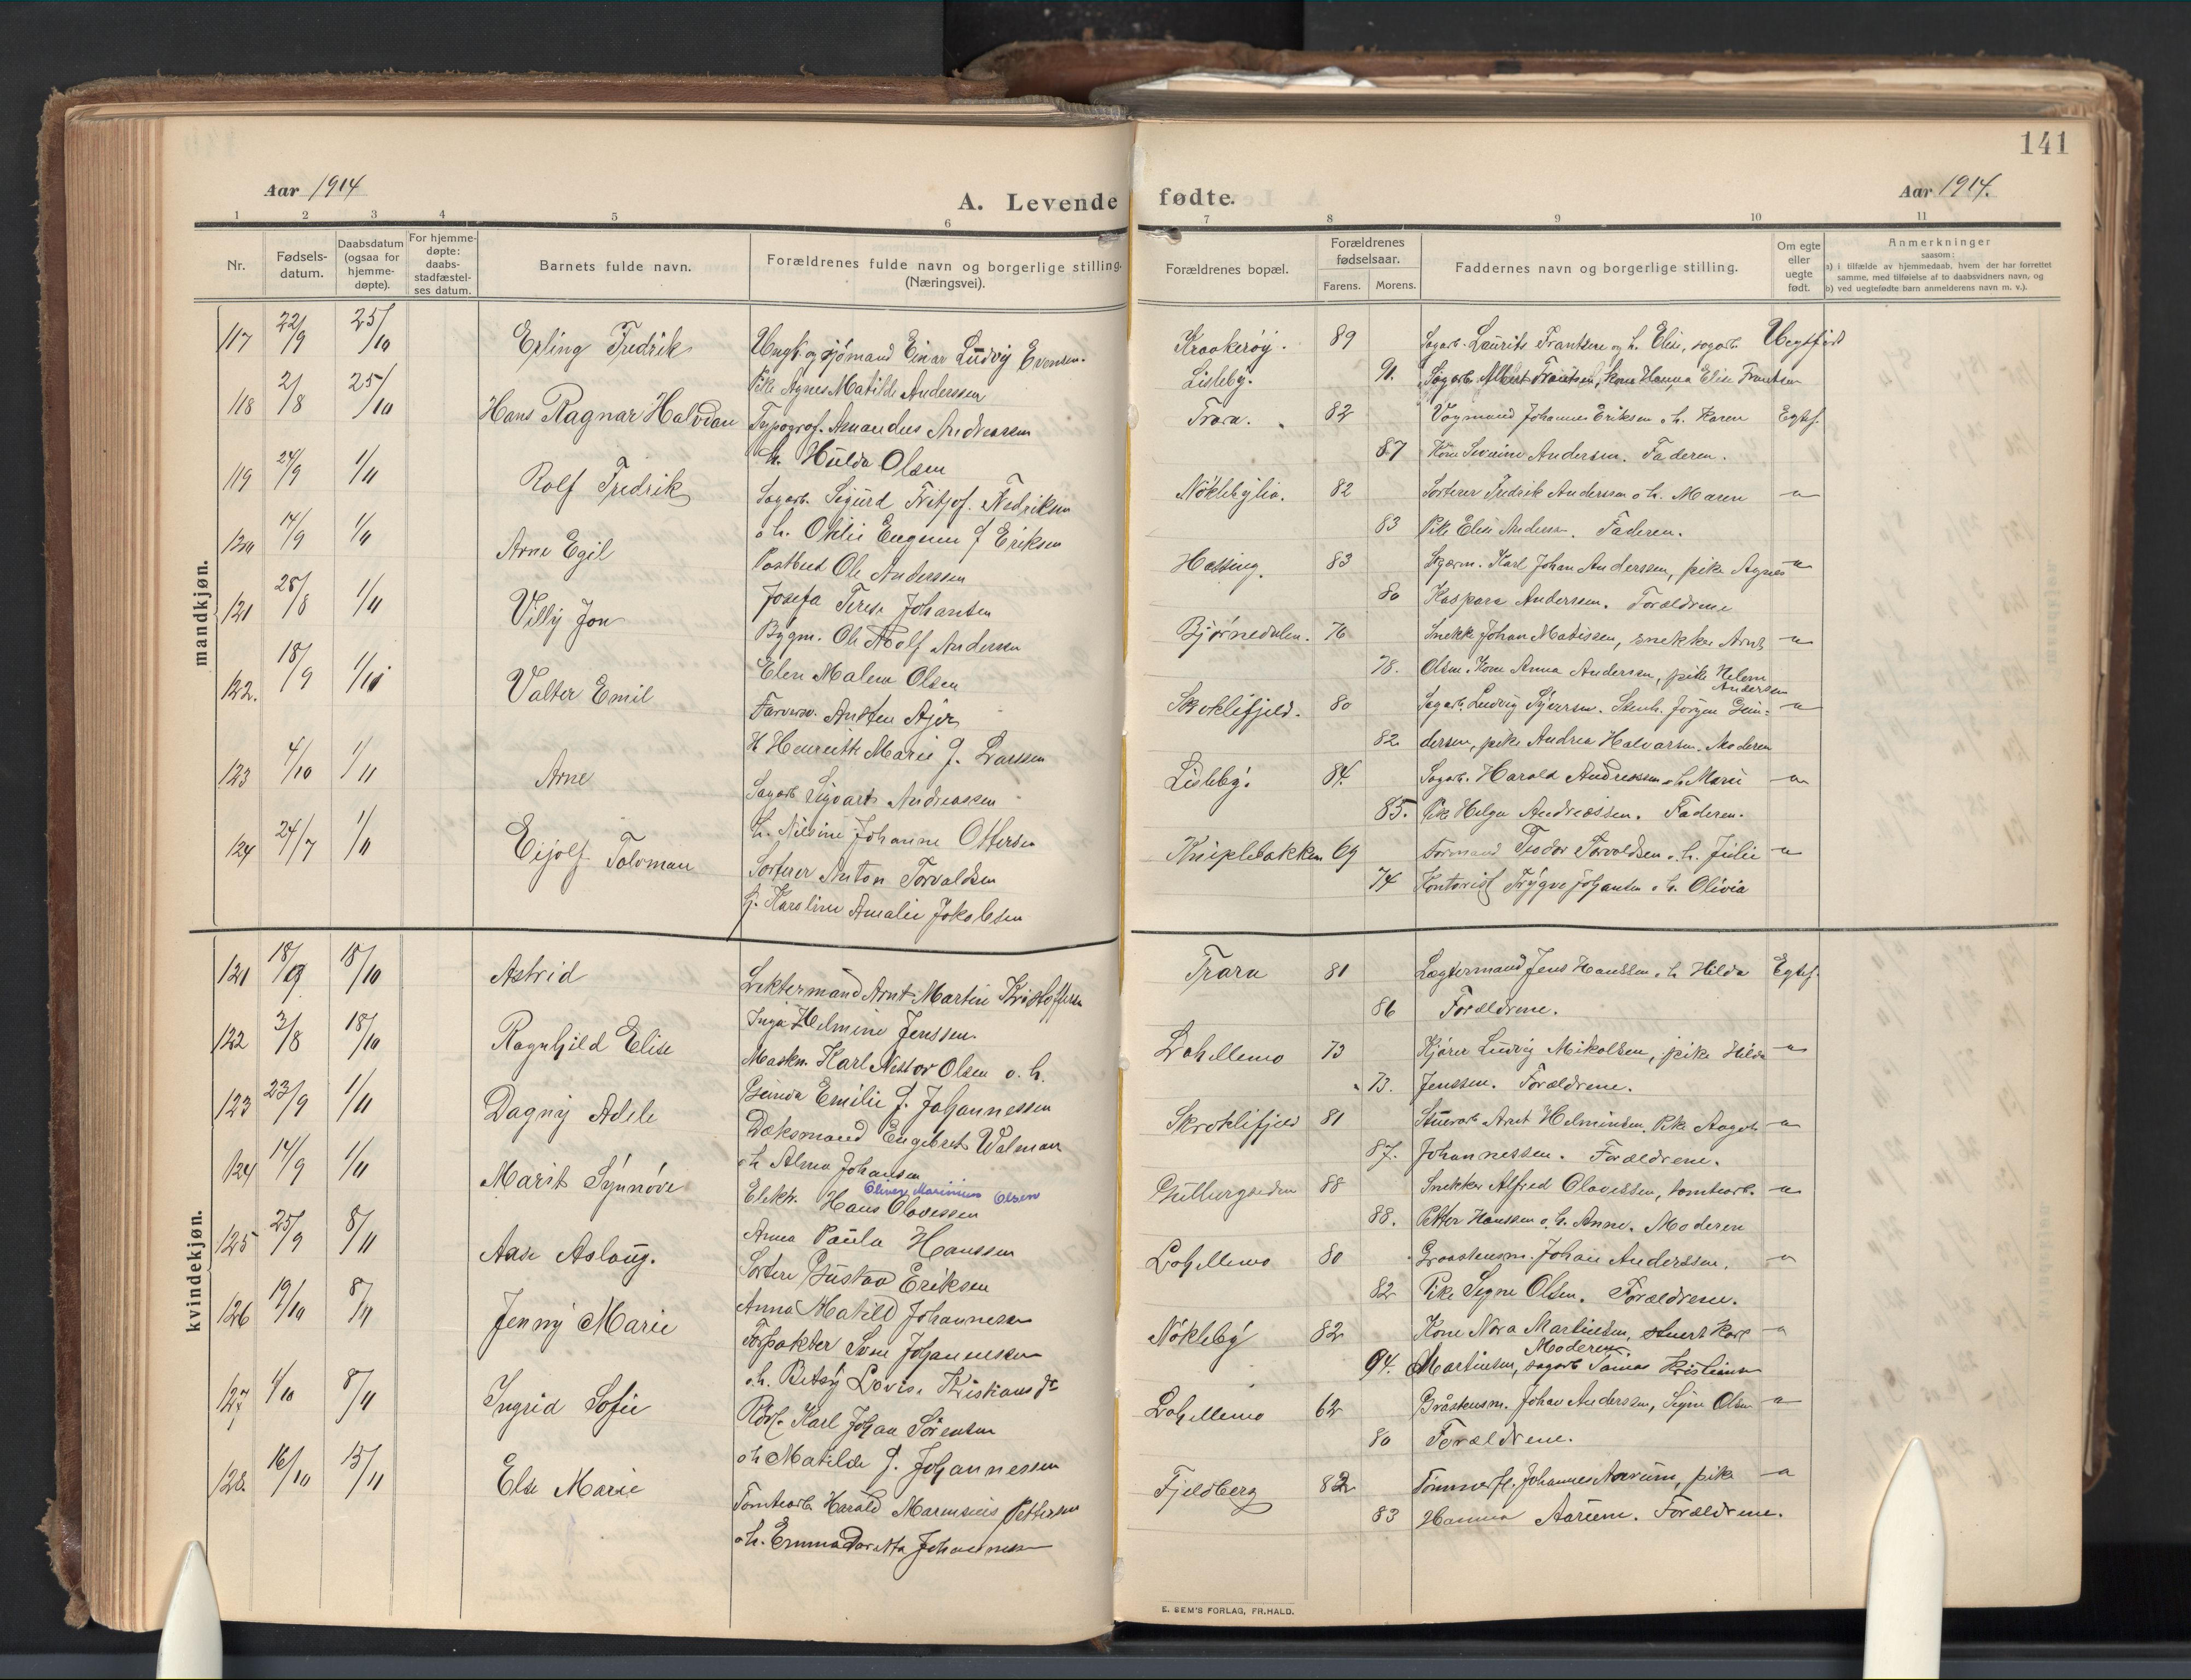 141
Aar 1914
A. Levende fødte.
Aar 1914.
1 2 3 4 5 6 7 8 9 10 11
Nr.
Fødsels-
datum.
Daabsdatum
(ogsaa for
hjemme-
døpte).
For hjemme-
døpte:
daabs-
stadfæstel-
ses datum.
Barnets fulde navn.
Forældrenes fulde navn og borgerlige stilling.
(Næringsvei).
Forældrenes bopæl.
Forældrenes
fødselsaar.
Farens. Morens.
Faddernes navn og borgerlige stilling.
Om egte
eller
uegte
født.
Anmerkninger
saasom:
a) i tilfælde av hjemmedaab, hvem der har forrettet
samme, med tilføielse af to daabsvidners navn, og
b) ved uegtefødte barn anmelderens navn m. v.).
mandkjøn.
117 22/9 25/10 Erling Fredrik Ungk. og sjömand Einar Ludvig Evensen. Kraakeröy. 89 Sagarb. Laurits Frantsen og h. Elise, sagarb. Uegtfödt
Pike Agnes Matilde Anderssen Lisleby. 91. Sagarb. Albert Frantsen, Kone Hanna Elise Frantsen
118 2/8 25/10 Hans Ragnar Halvdan Typograf. Amandus Andreasen Trara. 82 Vognmand Johannes Eriksen o. h. Karen Egtef.
h. Hulda Olsen 87 Kone Severine Andersen. Faderen.
119 24/9 1/11 Rolf Fredrik Sagarb. Sigurd Fritjof. Fredriksen Nöklebylia. 82 Sorterer Fredrik Anderssen o. h. Maren
o. h. Otilie Eugenie f Eriksen 83 Pike Elise Anderss. Faderen.
120 14/9 1/11 Arne Egil Postbud Ole Anderssen Hassing. 83 Karl Johan Anderssen, pike Agnes
Josefa Terese Johansen 80 Kaspara Anderssen. Forældrene
121 28/8 1/11 Villy Jon Bygm. Ole Adolf Andersen Bjørnedalen. 76 Snekk Johan Matissen, snekker Arnt
Elen Malene Olsen 78. Olsen. Kone Anna Andersen, pike Helene
Andersen
122. 18/9 1/11 Valter Emil Skroklifjeld. 80 Sagarb. Ludvig Syversen. Stenh. Jörgen Gun-
H Henriette Marie f. Larssen 82 dersen, pike Andrea Halvorsen. Moderen
123 4/10 1/11 Arne Sagarb Sigvart Andreassen Lisleby. 84. Sagarb. Harald Andreassen o. h. Marie
h. Nilsine Johanne Ottersen 85. Pike Helga Andreassen. Faderen.
124 24/7 1/11 Eijolf Tolvman Sorterer Anton Torvaldsen Kniplebakken 69 Formand Teodor Torvaldsen o. h. Julie
h. Karoline Amalie Jakobsen 74 Kontorist Trygve Johansen o. h. Olivia
kvindekjøn.
121 18/9 18/10 Astrid Lektermand Arnt Martin Kristoffersen Trara 81 Lægtermand Jens Hanssen o. h Hilda Egtef.
Inga Helmine Jenssen. 86 Forældrene.
122 3/8 18/10 Ragnhild Elise Maskm. Karl Nestor Olsen o. h. Lahellemo 73 Kjører Ludvig Mikalsen, pike Hilda
Gunda Emilie f. Johannessen 73. Jenssen. Forældrene.
123 23/9 1/11 Dagny Adele Dæksmand Engebret Walman Skroklifjeld 81 Arnt Helminsen. Pike Aagot
o h Alma Johansen 87. Johannessen. Forældrene.
124 14/9 1/11 Marit Synnöve Elektr. Hans Olavessen 88 Snekker Alfred Olavessen, tomtearb.
Oliver Marinius Olsen
Anna Paula Hanssen 88. Petter Hanssen o. h. Anne. Moderen
125 25/9 8/11 Aase Aslaug. Sorterer Gustav Eriksen Lahellemo 80 Graastensm. Johan Anderssen.
Anna Matild Johannesen 82 Pike Signe Olsen. Forældrene.
126 19/10 8/11 Jenny Marie Forpakter Sven Johannessen Nökleby 82 Kone Nora Martinsen, stuert Karl
o. h. Betsy Lovise Kristiansd 94. Martinsen, sagarb Tomas Kristiansen
Moderen
127 4/10 8/11 Ingrid Sofie Karl Johan Sörensen Lahellemo 62 Gråstensm. Johan Anderssen, Signe Olsen
o h Matilde f. Johannessen 80 Forældrene.
128. 16/10 15/11 Else Marie Tomtearb Harald Marensius Pettersen Fjeldberg 82 Tömmerfl. Johannes Aarum, pike
o. h. Emma Dorthea Johannesen 83 Hanna Aarum. Forældrene.
E. SEM'S FORLAG, FR.HALD.